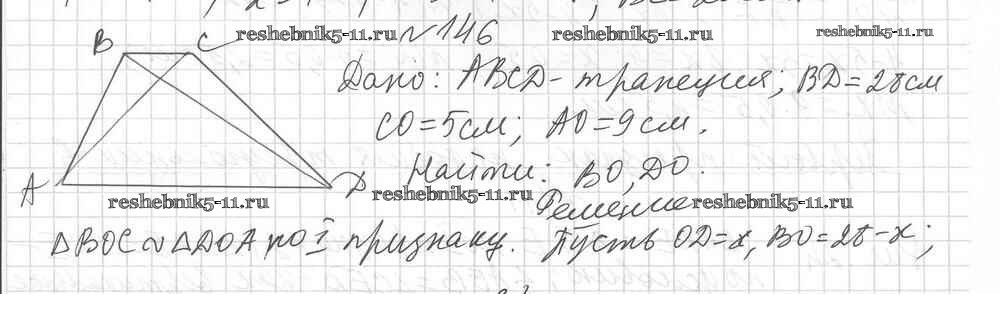 reshebnik5-11.ru №146 reshebnik5-11.ru reshebnik5-11.ru
B C
Дано: ABCD - трапеция; BD=28см
CO=5см; AO=9см.
Найти: BO, DO.
A D
reshebnik5-11.ru reshebnik5-11.ru Решение reshebnik5-11.ru
△BOC ∾ △DOA по I признаку. Пусть OD=x, BO=28-x;